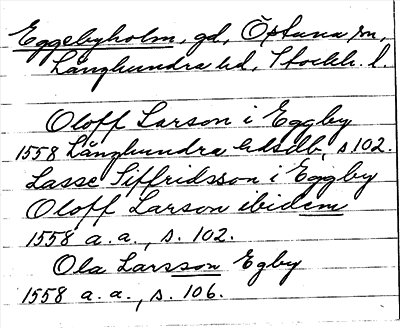 Eggebyholm, gd, Östuna sn,
Långhundra hd, Stockh. l.
Oloff Larson i Eggby
1558 Långhundra hdsdb, s 102.
Lasse Siffridsson i Eggby
Oloff Larson ibidem
1558 a. a., s. 102.
Ola Larsson Egby
1558 a. a., s. 106.